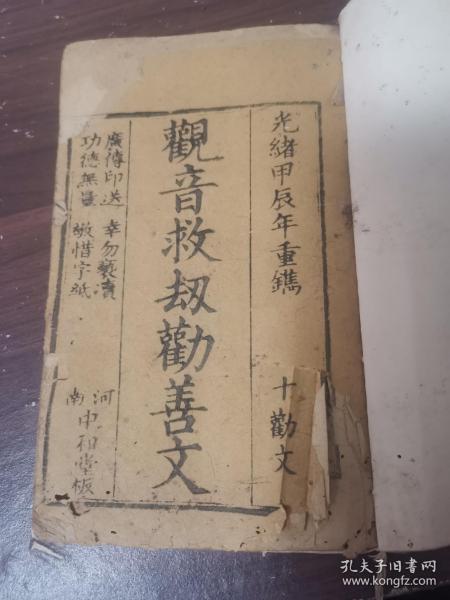 光緒甲辰年重鐫
十勸文
觀音救刼勸善文
廣傳印送 幸勿褻瀆
功德無量 敬惜字紙
河南中和堂板
孔夫子旧书网
www.kongfz.com